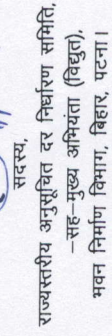 सदस्य,
राज्यस्तरीय अनुसूचित दर निर्धारण समिति,
–सह–मुख्य अभियंता (विद्युत),
भवन निर्माण विभाग, बिहार, पटना।